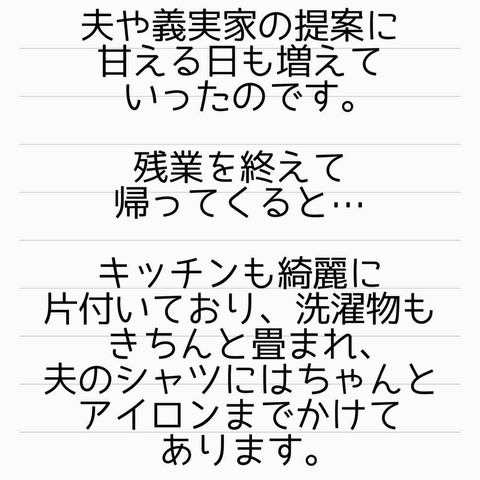 夫や義実家の提案に
甘える日も増えて
いったのです。
残業を終えて
帰ってくると…
キッチンも綺麗に
片付いており、洗濯物も
きちんと畳まれ、
夫のシャツにはちゃんと
アイロンまでかけて
あります。